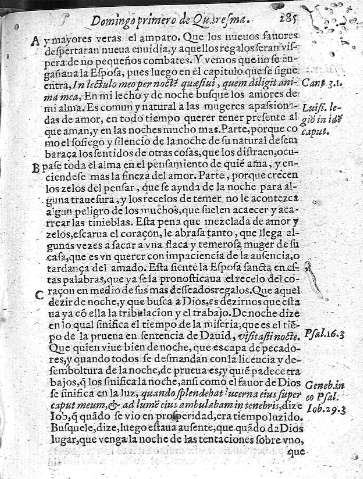 Domingo primero de Quaresma. 285
A y mayores veras el amparo. Que los nueuos fauores
despertaran nueua enuidia, y aquellos regalos seran vis-
pera de no pequeños combates. Y vemos que no se en-
gañaua la Esposa, pues luego en el capitulo que se sigue
entra, In lectulo meo per noctẽ quæsiui, quem diligit ani-
ma mea, En mi lecho y de noche busque los amores de
mi alma. Es comun y natural a las mugeres apasiona-
das de amor, en todo tiempo querer tener presente al
que aman, y en las noches mucho mas. Parte, porque co
mo el sosiego y silencio de la noche de su natural desem
baraça los sentidos de otras cosas, que los distraen, ocu-
B pase toda el alma en el pensamiento de quiẽ ama, y en-
ciendese mas la fineza del amor. Parte, porque crecen
los zelos del pensar, que se ayuda de la noche para al-
guna trauesura, y los recelos de temer no le acontezca
algun peligro de los muchos, que suelen acaecer y aca-
rrear las tinieblas. Esta pena que mezclada de amor y
zelos, escarua el coraçon, le abrasa tanto, que llega al-
gunas vezes a sacar a vna flaca y temerosa muger de su
casa, que es vn querer con impaciencia de la ausencia, o
tardança del amado. Esta siente la Esposa sancta en es-
tas palabras, que ya se la pronosticaua el recelo del co-
raçon en medio de sus mas deseados regalos. Que aquel
C dezir de noche, y que busca a Dios, es dezirnos que esta
ua ya cõ ella la tribulacion y el trabajo. De noche dize
en lo qual sinifica el tiempo de la miseria, que es el tiẽ-
po de la prueua en sentencia de Dauid, visitasti nocte.
Que quien viue bien de noche, que es capa de pecado-
res, y quando todos se desmandan con la licencia y de-
semboltura de la noche, de prueua es, y quiẽ padece tra
bajos, q̃ los sinifica la noche, ansi como el fauor de Dios
se sinifica en la luz, quando splendebat lucerna eius super
caput meum, & ad lumẽ eius ambulabam in tenebris, dize
Iob, q̃ quãdo se vio en prosperidad, era tiempo luzido.
Busquele, dize, luego estaua ausente, que quãdo da Dios
lugar, que venga la noche de las tentaciones sobre vno,
que
Cant. 3.1.
Luis. le-
giõ in idẽ
caput.
Psal. 16.3
Geneb. in
eo Psal.
Iob. 29.3